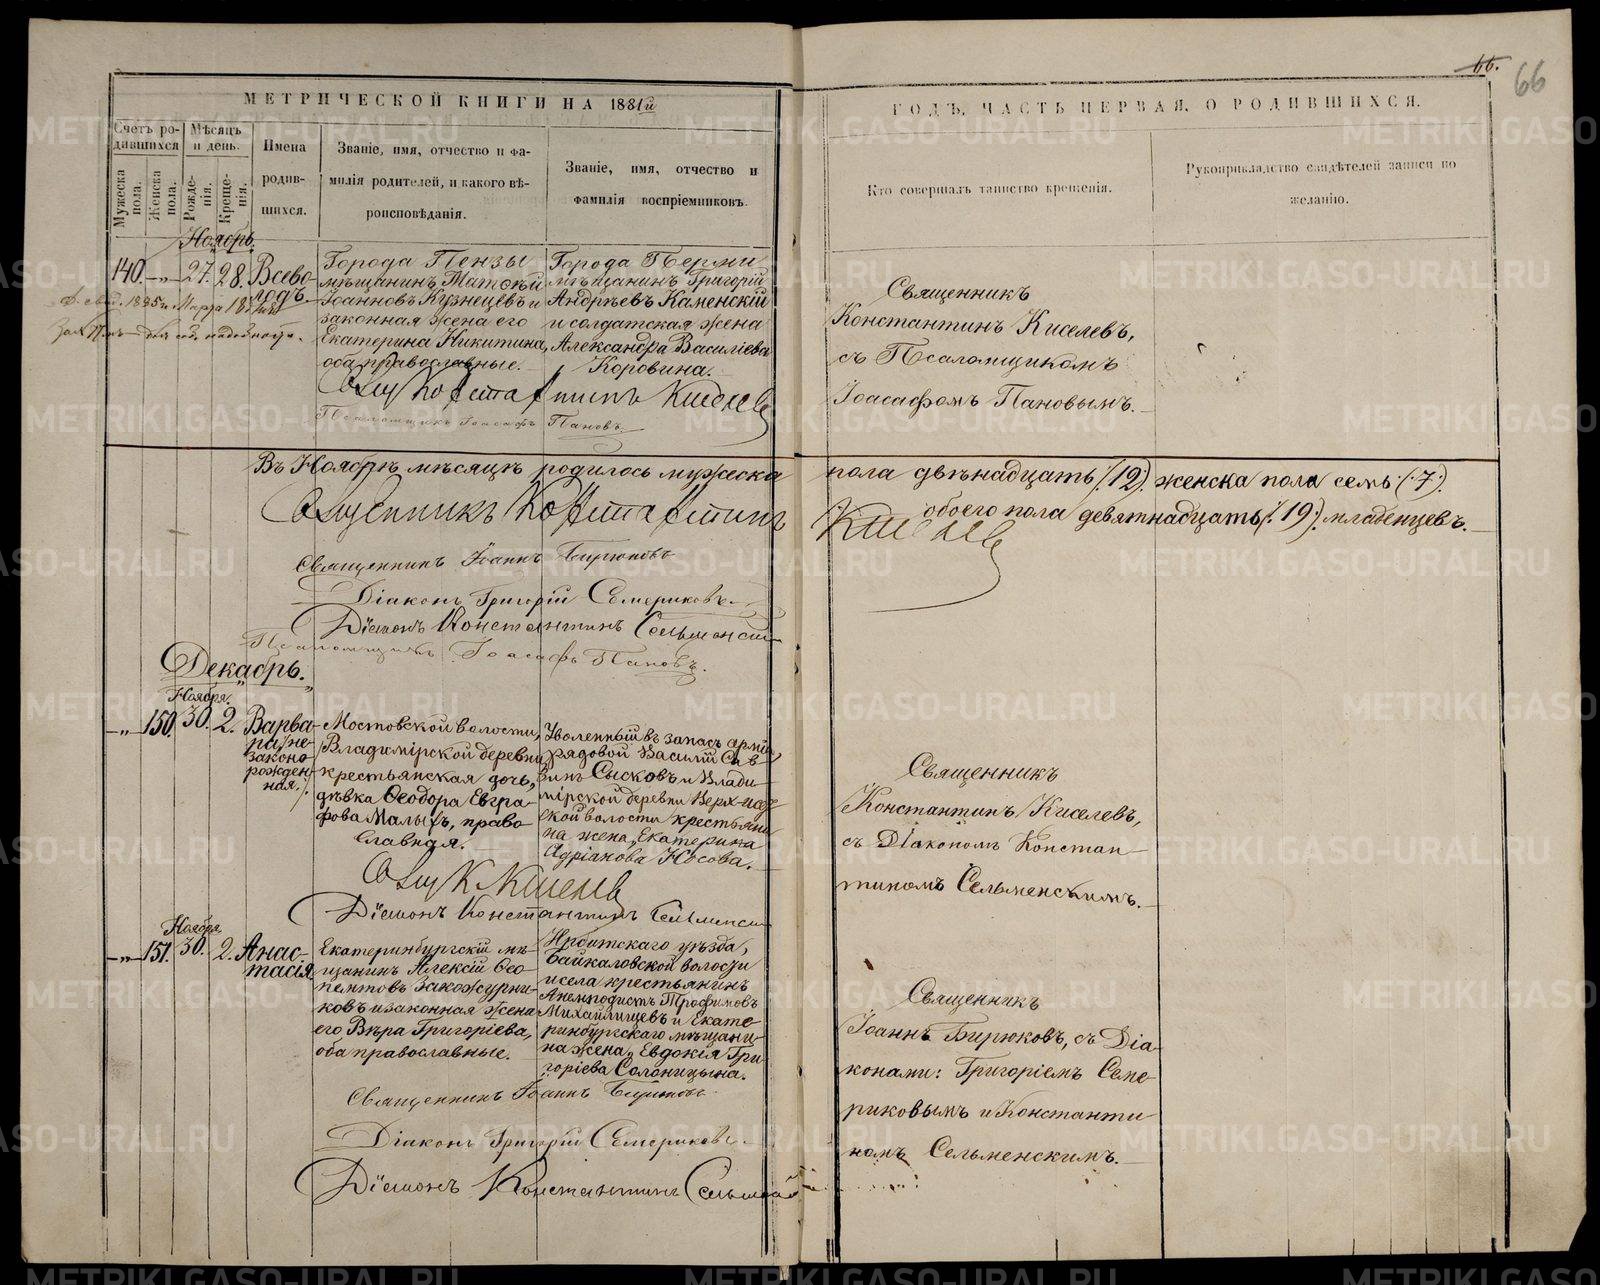 66.
66
МЕТРИЧЕСКОЙ КНИГИ НА 1881й
ГОДЪ, ЧАСТЬ ПЕРВАЯ, О РОДИВШИХСЯ.
Счетъ родившихся
Мужеска пола.
Женска пола.
Мѣсяцъ и день.
Рожденія.
Крещенія.
Имена родившихся.
Званіе, имя, отчество и фамилія родителей, и какого вѣроисповѣданія.
Званіе, имя, отчество и фамилія воспріемниковъ.
Кто совершалъ таинство крещенія.
Рукоприкладство свидѣтелей записи по желанію.
Ноябрь.
140. — „ — 27. 28. Всеволодъ.
Города Пензы
мѣщанинъ
Іоанновъ Кузнецовъ и
законная жена его
Екатерина Никитина,
оба православные.
Города Перми
мѣщанинъ Григорій
Андреевъ Каменскій
и солдатская жена
Александра Василіева
Коровина.
Священникъ
Константинъ Киселевъ,
съ Псаломщикомъ
Іоасафомъ Пановымъ.
Свящ Константинъ Киселевъ
Псаломщикъ Іоасафъ Пановъ.
Въ Ноябрѣ мѣсяцѣ родилось мужеска пола двѣнадцать (.12.) женска пола семь (.7.)
обоего пола девятнадцать (.19.) младенцевъ.
Священникъ Константинъ Киселевъ
Священникъ Іоаннъ Бирюковъ
Діаконъ Григорій Семериковъ.
Діаконъ Константинъ Сельменскій
Псаломщикъ Іоасафъ Пановъ.
Декабрь.
Ноября.
— „ — 150. 30. 2. Варвара /незаконнорожденная./
Мостовской волости,
Владимірской деревни,
крестьянская дочь,
дѣвка Ѳеодора Евграфова
Малыхъ, православная.
Уволенный въ запасъ арміи
рядовой Василій Саввинъ
Сысковъ и Владимірской
деревни Верх-исетской
волости крестьянина
жена, Екатерина
Адріанова Носова.
Священникъ
Константинъ Киселевъ,
съ Діакономъ Константиномъ
Сельменскимъ.
Свящ К Киселевъ
Діаконъ Константинъ Сельменскій
Ноября
— „ — 151. 30. 2. Анастасія
Екатеринбургскій мѣщанинъ
Алексій Ѳеопемптовъ
Закожурниковъ
и законная жена
его Вѣра Григоріева,
оба православные.
Ирбитскаго уѣзда,
Байкаловской волости
и села крестьянинъ
Анемподистъ Трофимовъ
Михайлищевъ и Екатеринбургскаго
мѣщанина
жена, Евдокія Григоріева
Солоницына.
Священникъ
Іоаннъ Бирюковъ, съ Діаконами:
Григоріемъ Семериковымъ
и Константиномъ
Сельменскимъ.
Священникъ Іоаннъ Бирюковъ
Діаконъ Григорій Семериковъ.
Діаконъ Константинъ Сельменскій
METRIKI.GASO-URAL.RU